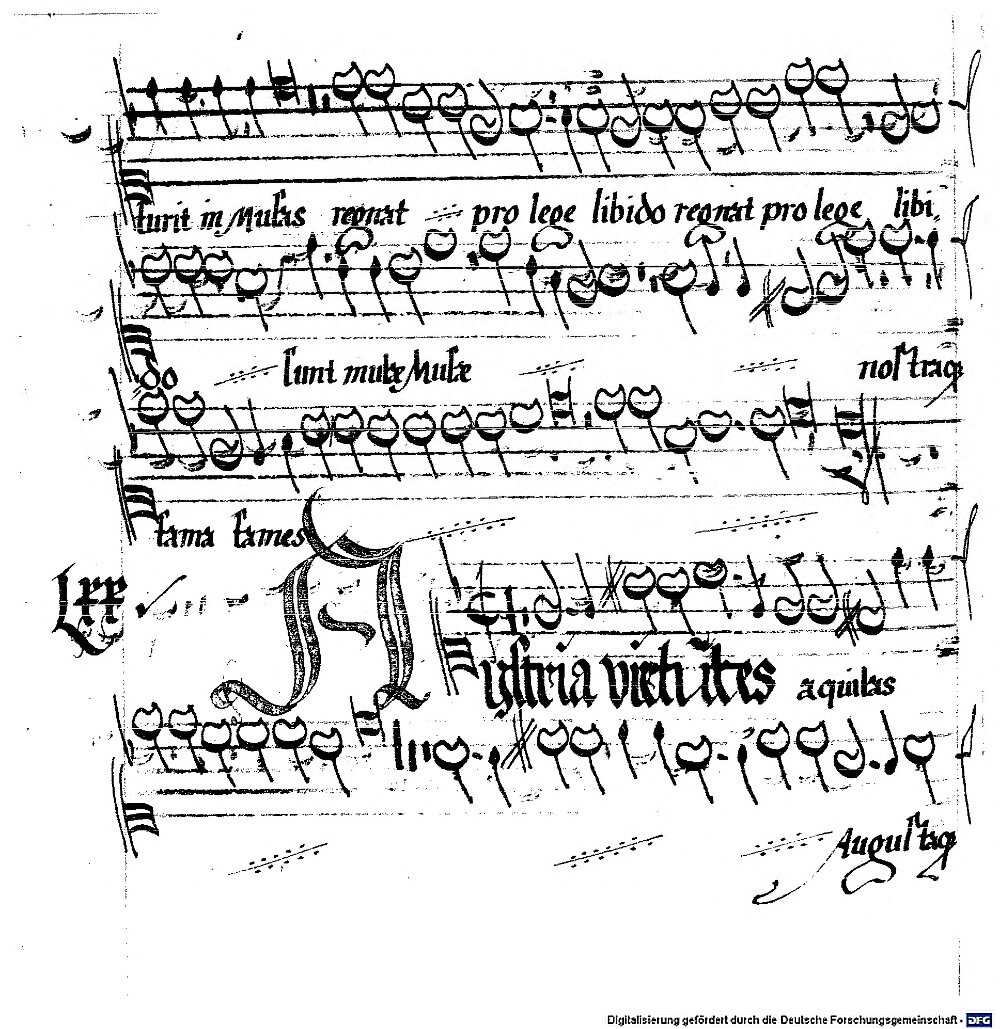 furit in Musas regnat pro lege libido regnat pro lege libi
do sunt mutæ Musæ nostraq
fama fames
Lxx
Hystria virtutes aquilas
Augustaq
Digitalisierung gefördert durch die Deutsche Forschungsgemeinschaft - DFG